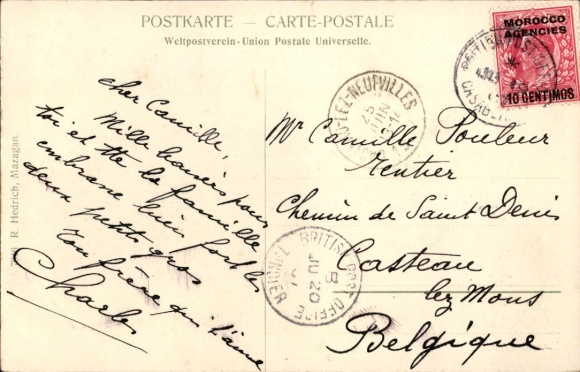 POSTKARTE — CARTE-POSTALE
Weltpostverein-Union Postale Universelle.
MOROCCO
AGENCIES
10 CENTIMOS
R. Hedrich, Mazagan.
cher Camille,
Mille baisers pour
toi et tte la famille
embrasse bien fort les
deux petits gros
Ton frère qui t'aime
Charles
Mr Camille Pouleur
Rentier
Chemin de Saint Denis
Casteau
lez Mons
Belgique
LEZ-NEUFVILLES
25
JUIN
BRITISH POST OFFICE
B
JU 20